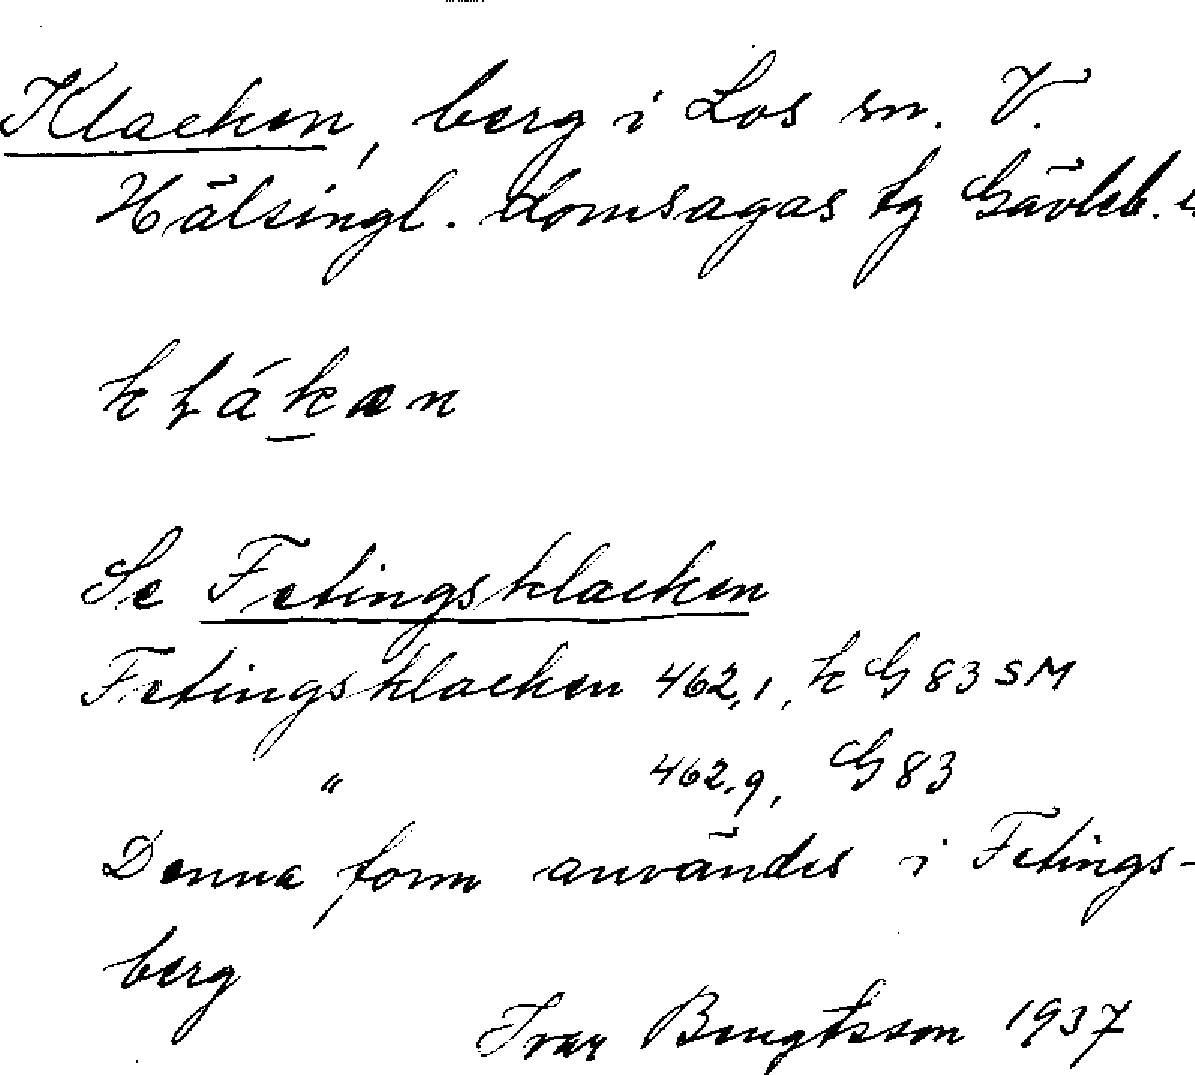 Klacken, berg i Los sn. V.
Hälsingl. domsagas tg Gävleb. l
kłákan
Se Fetingsklacken
Fetingsklacken 462,1, k G 83 SM
" 462,9, G 83
Denna form användes i Fetings-
berg
Ivar Bengtsson 1937